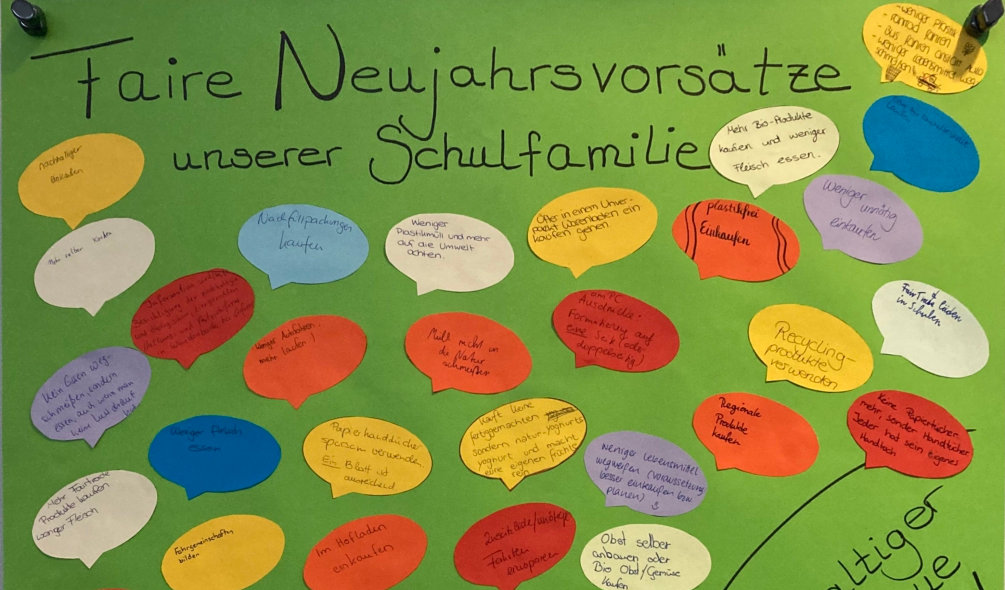 Faire Neujahrsvorsätze
unserer Schulfamilie
- weniger Plastik
- Fahrrad fahren
- Bus fahren anstatt Auto
- weniger Lebensmittel weg
schmeißen
Mehr Bio-Produkte
kaufen und weniger
Fleisch essen.
nachhaltiger
Einkaufen
Weniger unnötig
einkaufen
Nachfüllpackungen
kaufen
Weniger
Plastikmüll und mehr
auf die Umwelt
achten.
Öfter in einem Unver-
packt Warenladen ein
kaufen gehen
plastikfrei
Einkaufen
Mehr selber
FairTrade
läden
in Schulen
Weniger Autofahren
mehr laufen!
Müll nicht in
die Natur
schmeißen
am PC
Ausdrucke-
Formatierung auf
eine Seite (oder
doppelseitig)
Recycling-
produkte
verwenden
Kein Essen weg-
schmeißen, sondern
essen, auch wenn man
keine Lust darauf
hat
Weniger Fleisch
essen
Papierhandtücher
sparsam verwenden.
Ein Blatt ist
ausreichend
kauft keine
fertiggemachten
sondern natur-joghurts
yoghurt und macht
eure eigenen früchte
rein
weniger Lebensmittel
wegwerfen (Voraussetzung
besser einkaufen bzw
planen) :)
Regionale
Produkte
kaufen
Keine Papiertücher
mehr, sonder Handtücher
Jeder hat sein eigenes
Handtuch
Mehr Fairtrade
Produkte kaufen
weniger Fleisch
Fahrgemeinschaften
bilden
Im Hofladen
einkaufen
unnötige
Fahrten
einsparen
Obst selber
anbauen oder
Bio Obst/Gemüse
kaufen
altiger